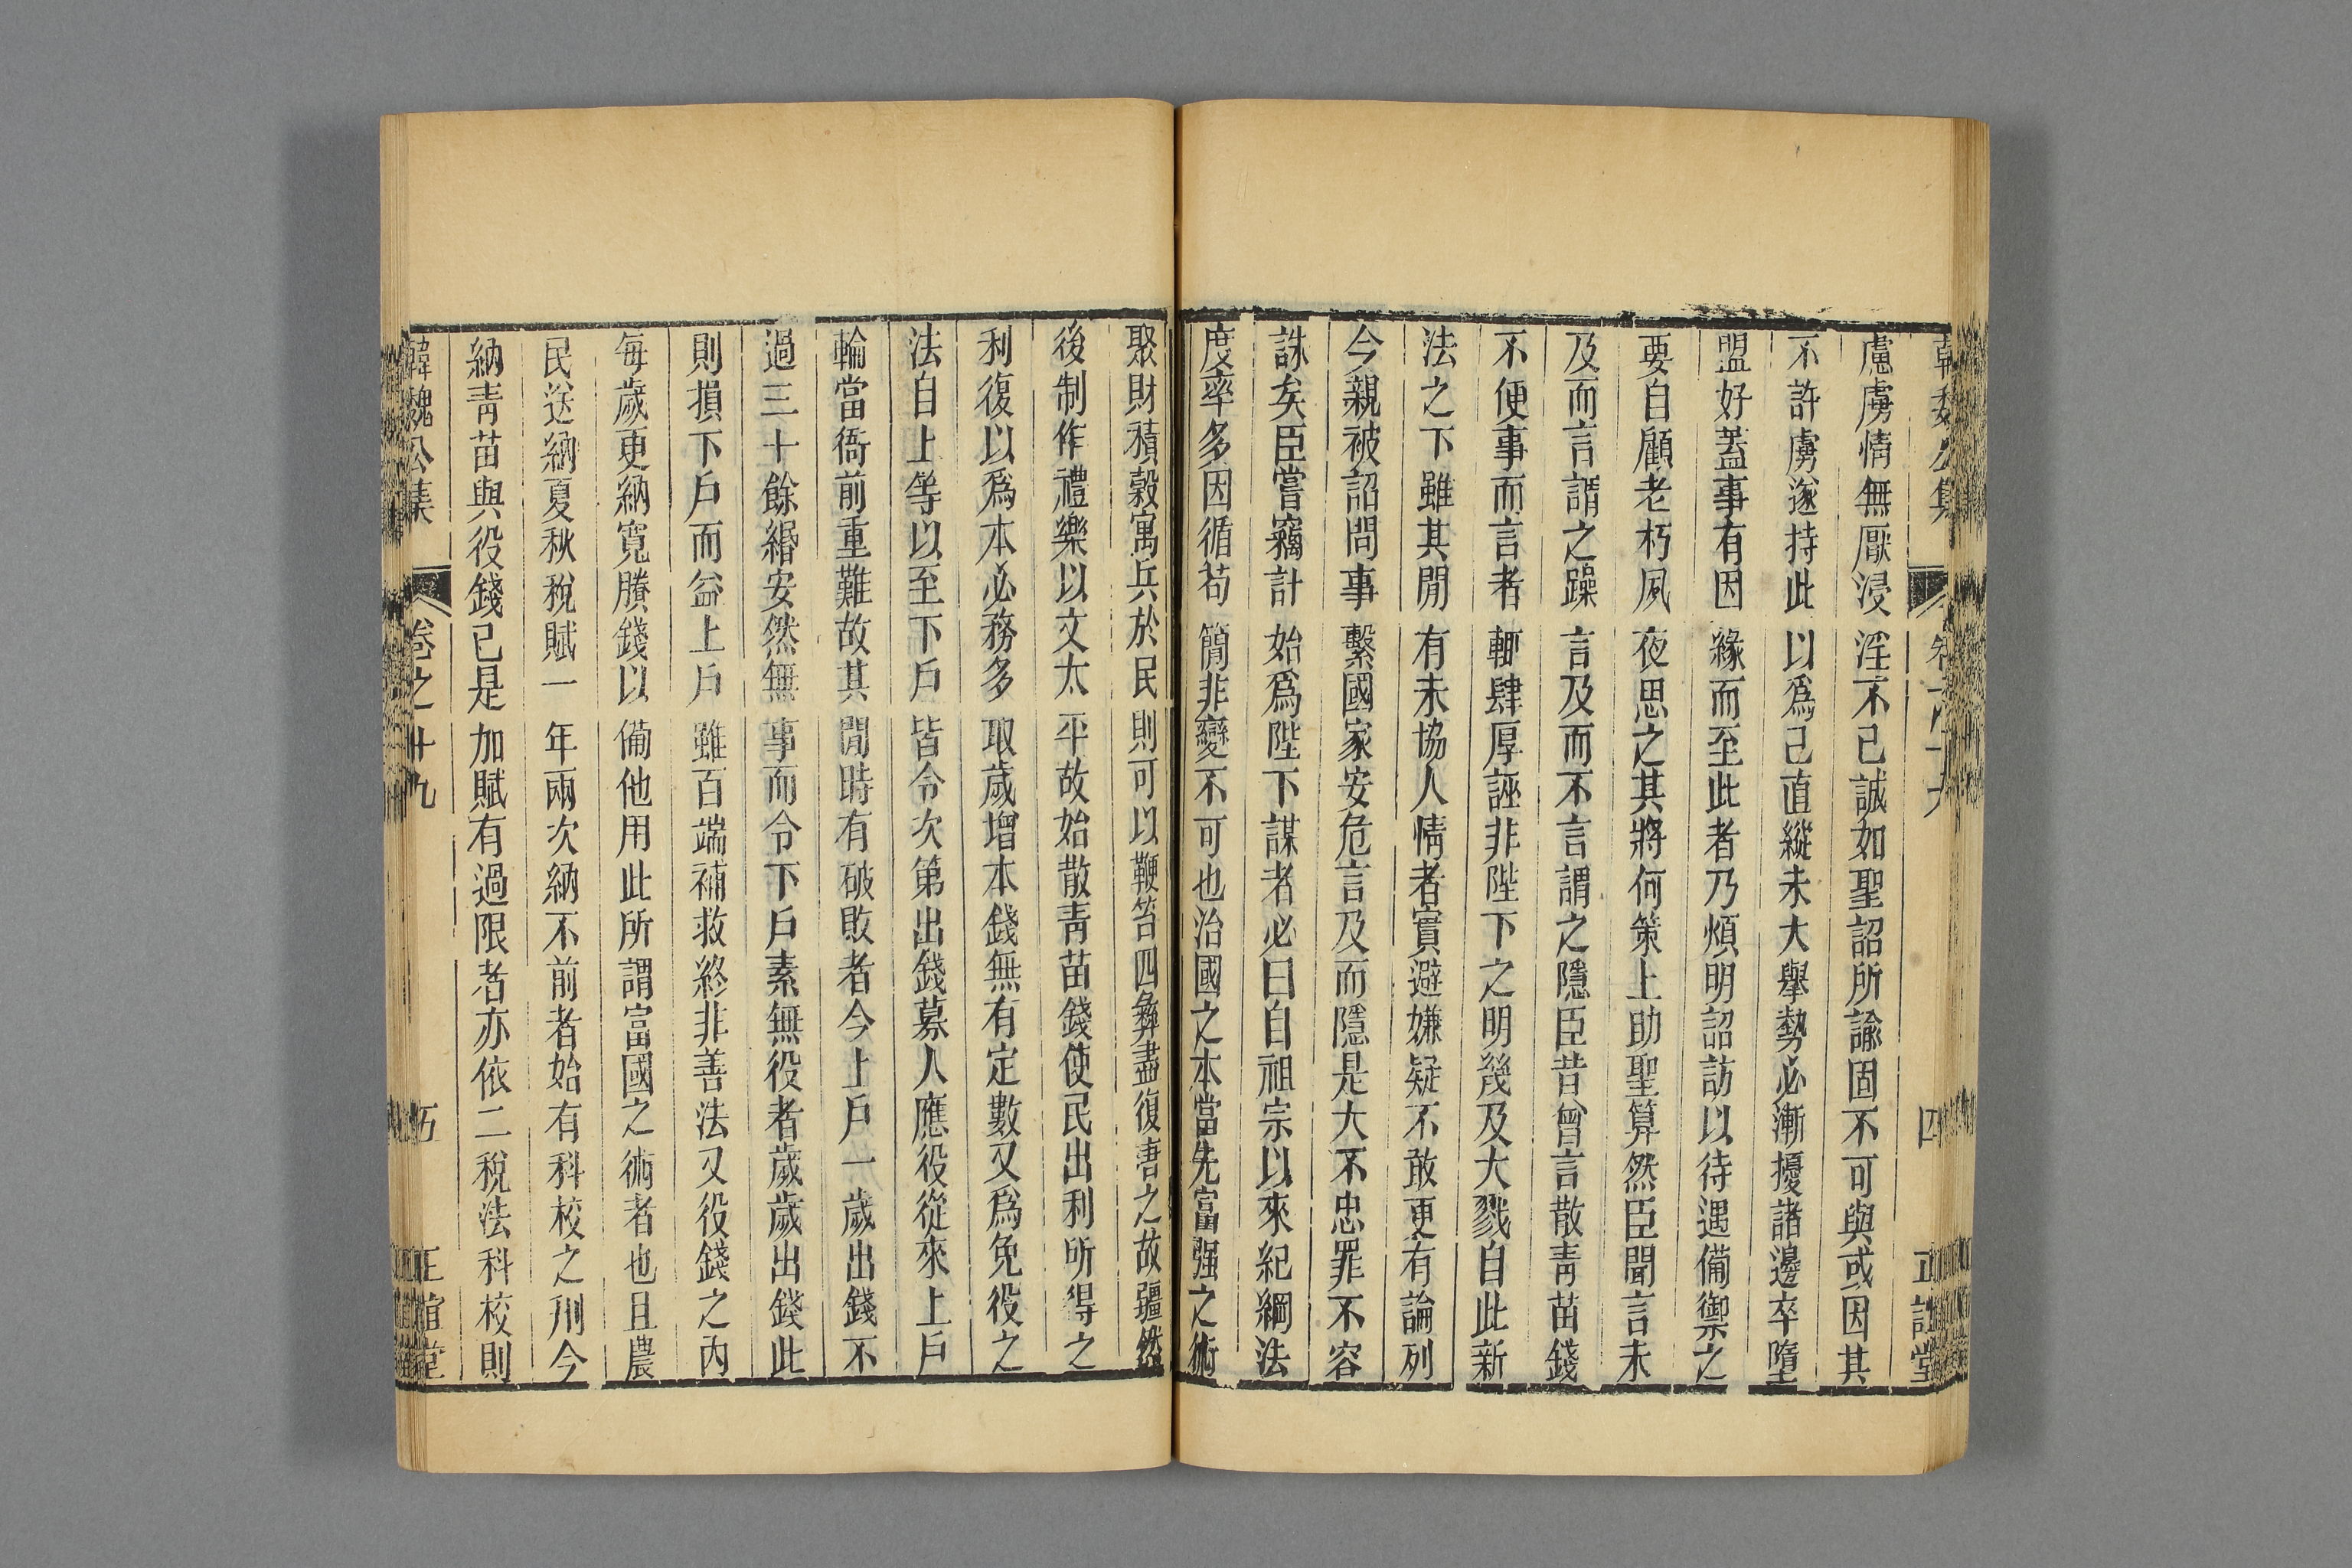 慮虜情無厭浸淫不已誠如聖詔所諭固不可與或因其
不許虜遂持此以爲己直縱未大舉勢必漸擾諸邊卒墮
盟好蓋事有因緣而至此者乃煩明詔訪以待遇備禦之
要自顧老朽夙夜思之其將何策上助聖算然臣聞言未
及而言謂之躁言及而不言謂之隱臣昔曾言散青苗錢
不便事而言者輒肆厚誣非陛下之明幾及大戮自此新
法之下雖其閒有未協人情者實避嫌疑不敢更有論列
今親被詔問事繫國家安危言及而隱是大不忠罪不容
誅矣臣嘗竊計始爲陛下謀者必曰自祖宗以來紀綱法
度率多因循苟簡非變不可也治國之本當先富强之術
聚財積穀寓兵於民則可以鞭笞四彝盡復唐之故疆然
後制作禮樂以文太平故始散青苗錢使民出利所得之
利復以爲本必務多取歲增本錢無有定數又爲免役之
法自上等以至下戶皆令次第出錢募人應役從來上戶
輪當衙前重難故其閒時有破敗者今上戶一歲出錢不
過三十餘緡安然無事而令下戶素無役者歲歲出錢此
則損下戶而益上戶雖百端補救終非善法又役錢之內
每歲更納寬賸錢以備他用此所謂富國之術者也且農
民送納夏秋稅賦一年兩次納不前者始有科校之刑今
納青苗與役錢已是加賦有過限者亦依二稅法科校則
韓魏公集 卷之十九 五 正誼堂